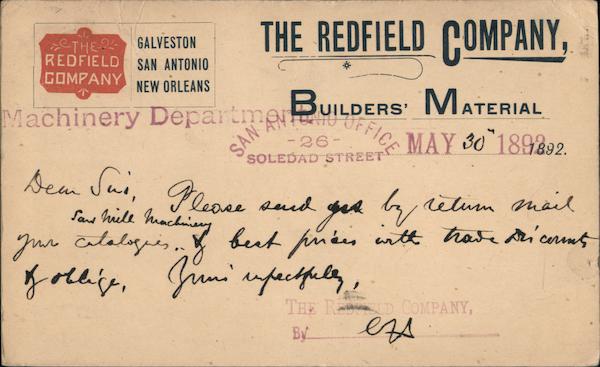 THE
REDFIELD
COMPANY
GALVESTON
SAN ANTONIO
NEW ORLEANS
THE REDFIELD COMPANY,
BUILDERS' MATERIAL
Machinery Department
SAN ANTONIO OFFICE
-26-
SOLEDAD STREET
MAY 30 1892
1892.
Dear Sir, Please send by return mail
Saw Mill Machinery
your catalogues. & best prices with trade discounts
& oblige, Yours respectfully,
THE REDFIELD COMPANY,
By